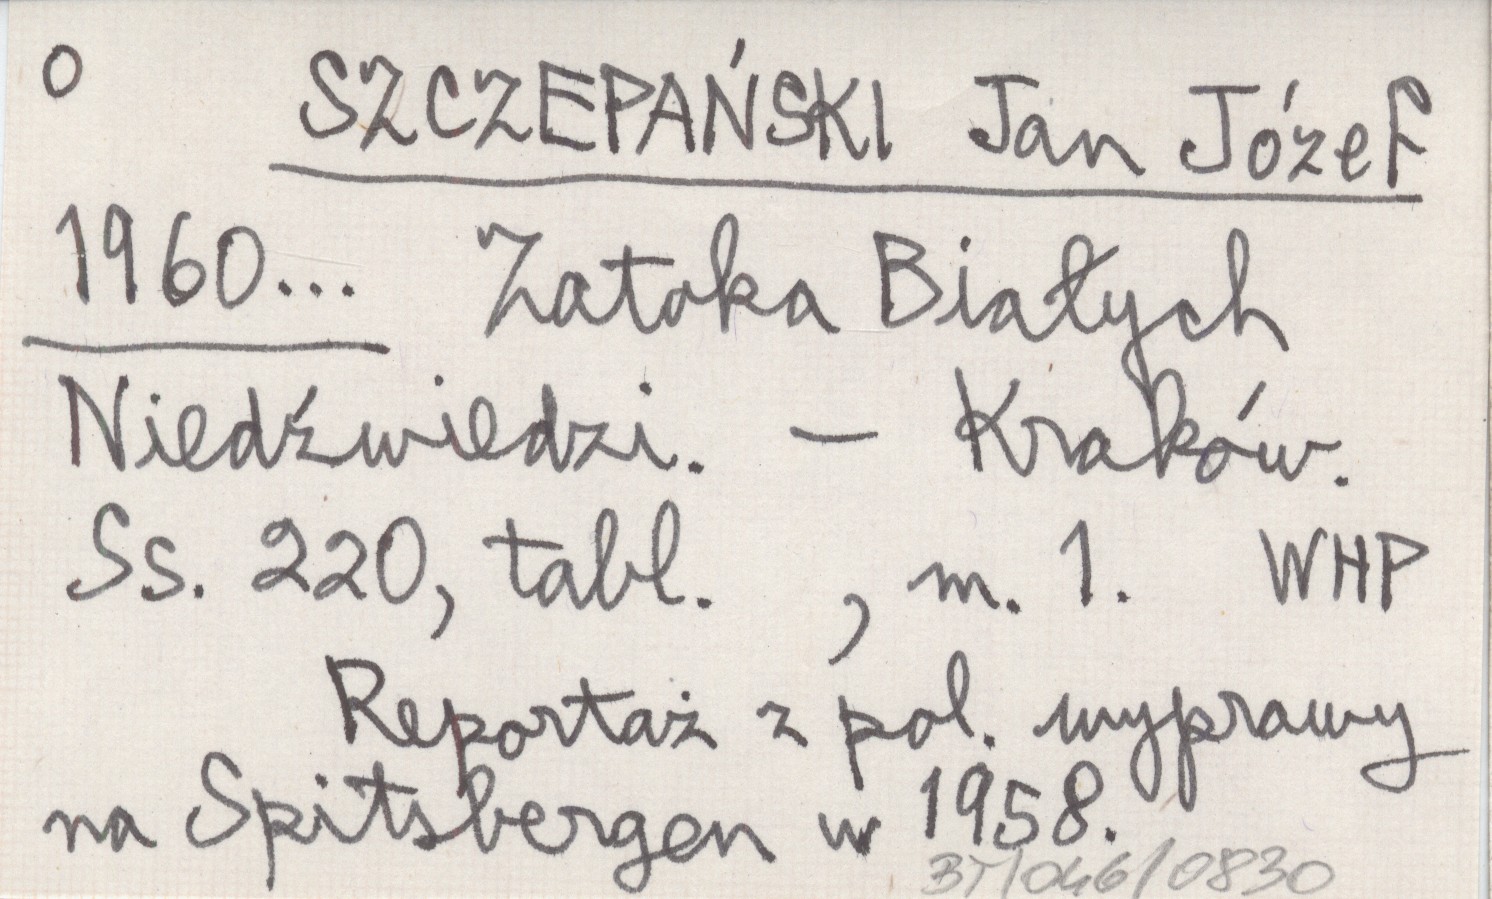 O SZCZEPAŃSKI Jan Józef
1960... Zatoka Białych
Niedźwiedzi. — Kraków.
Ss. 220, tabl. , m. 1. WHP
Reportaż z pol. wyprawy
na Spitsbergen w 1958.
BT/046/0830